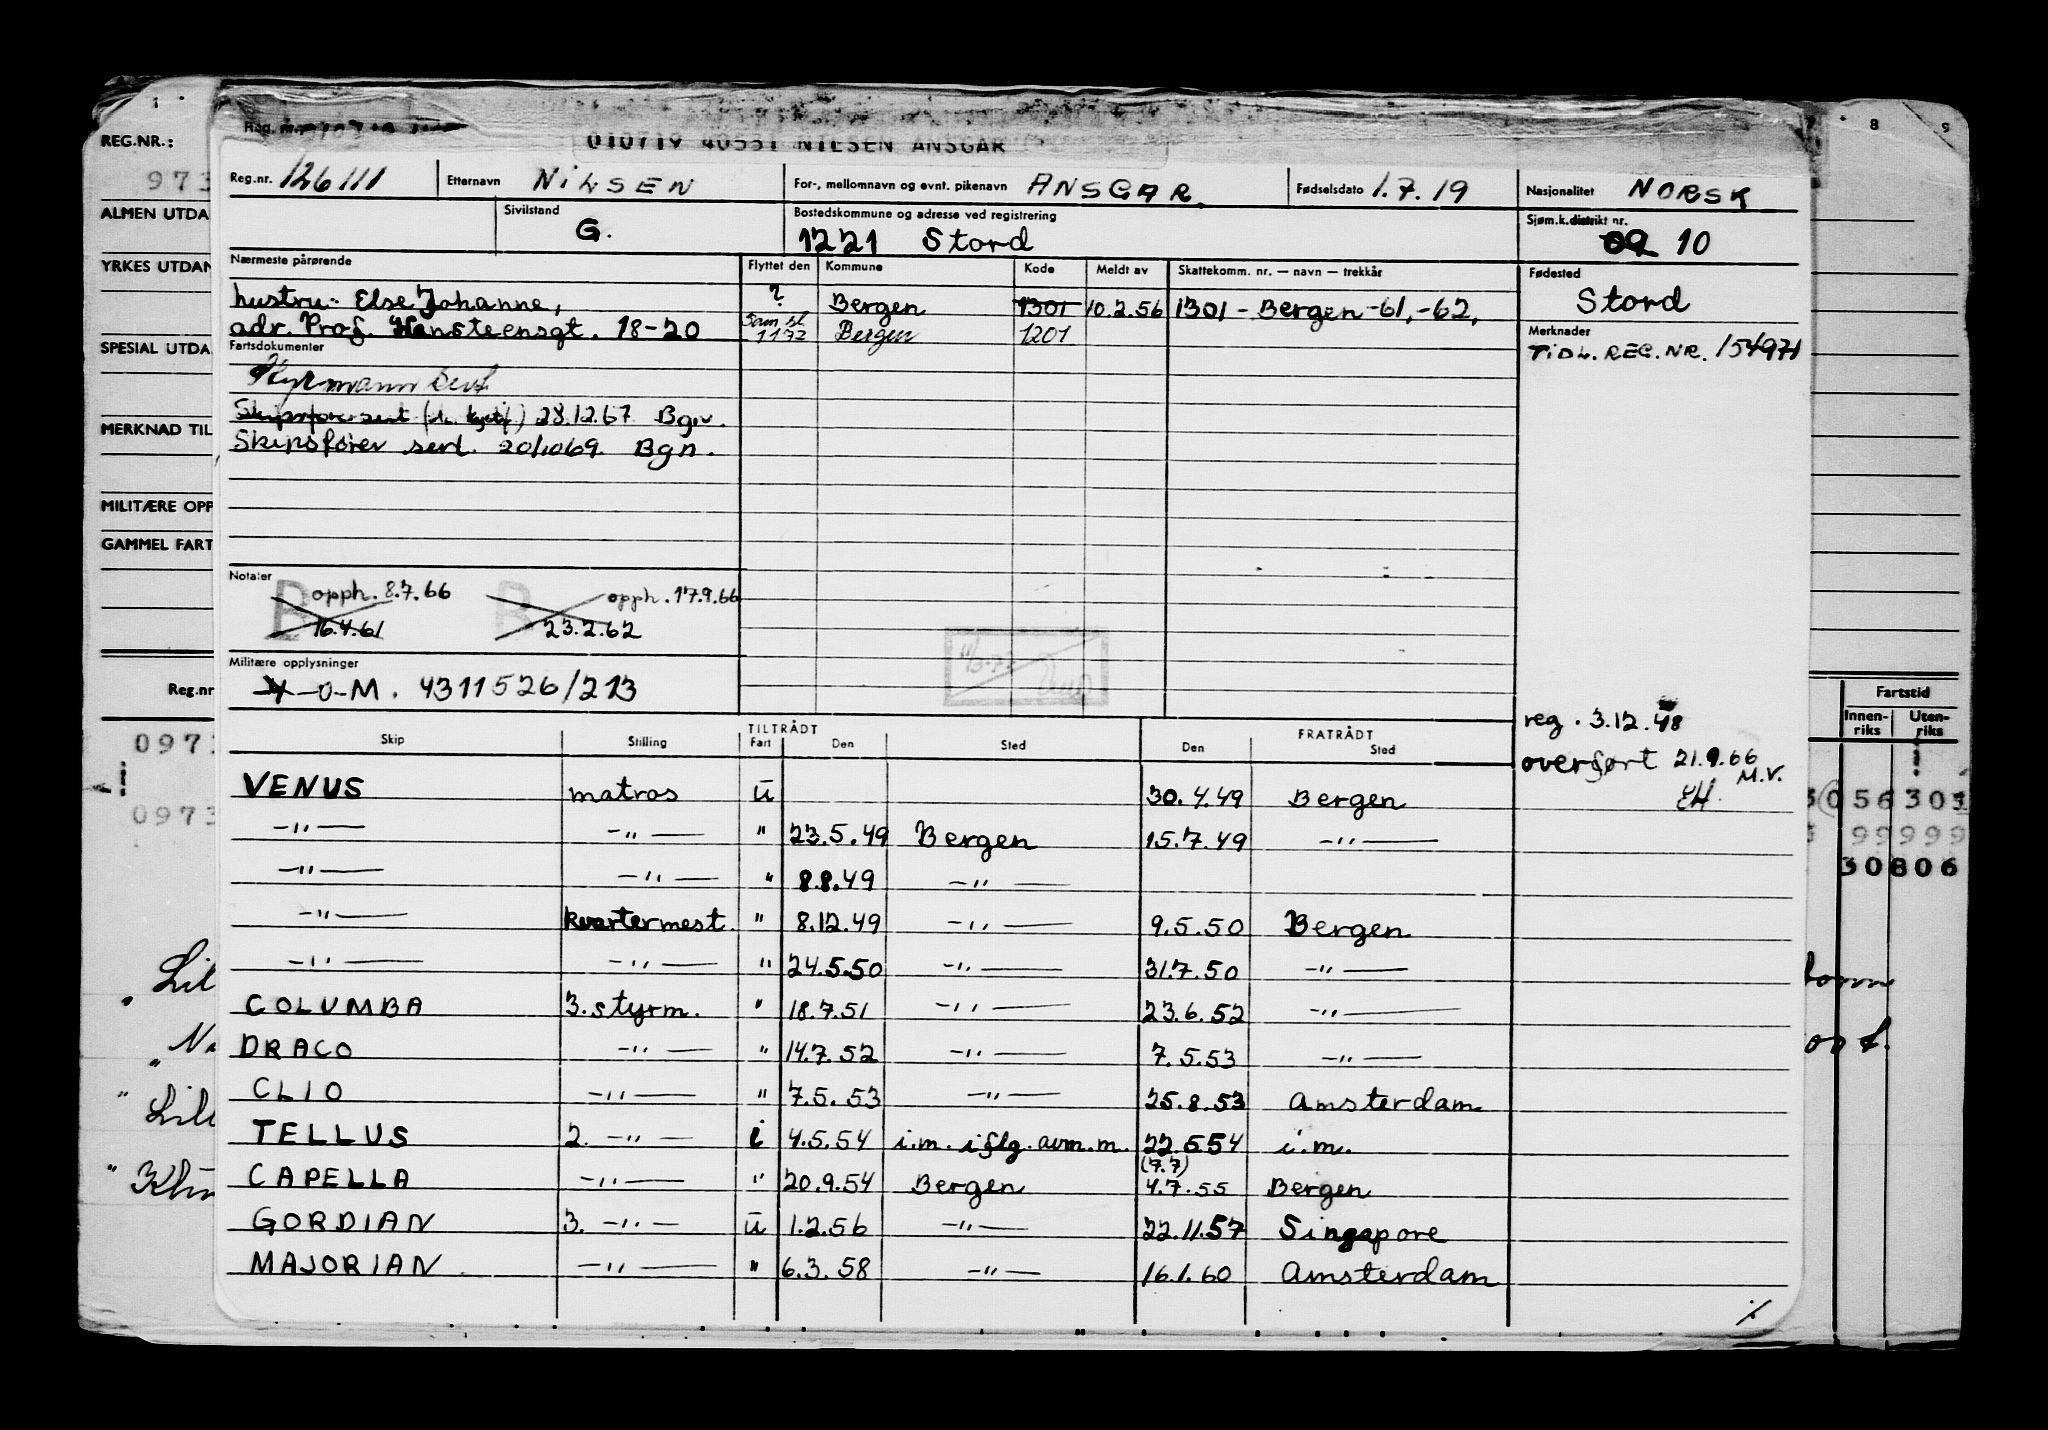 010719 40551 NILSEN ANSGAR
Reg.nr. 126111 Etternavn NILSEN For-, mellomnavn og evnt. pikenavn ANSGAR. Fødselsdato 1.7.19 Nasjonalitet NORSK
Sivilstand G. Bostedskommune og adresse ved registrering 1221 Stord Sjøm.k.distrikt nr. 09 10
Nærmeste pårørende Flyttet den Kommune Kode Meldt av Skattekomm. nr. — navn — trekkår Fødested
hustru: Else Johanne, ? Bergen 1301 10.2.56 1301 - Bergen -61, -62, Stord
adr. Prof. Hansteensgt. 18-20 1172 Bergen 1201 Merknader
Fartsdokumenter TIDL. REG. NR. 154971
Styrmann
28.12.67 Bgn.
Skipsfører sert. 20/10 69. Bgn.
Notater
B opph. 8.7.66 B opph. 17.9.66
16.4.61 23.2.62
Militære opplysninger
-0-M. 4311526/213
reg. 3.12.48
overført 21.9.66
M.V.
EH.
TILTRÅDT FRATRÅDT
Skip Stilling Fart Den Sted Den Sted
VENUS matros u 30.4.49 Bergen
-"- -"- " 23.5.49 Bergen 15.7.49 -"-
-"- -"- " 8.8.49 -"-
-"- kvartermest. " 8.12.49 -"- 9.5.50 Bergen
-"- -"- " 24.5.50 -"- 31.7.50 -"-
COLUMBA 3. styrm. " 18.7.51 -"- 23.6.52 -"-
DRACO -"- " 14.7.52 -"- 7.5.53 -"-
CLIO -"- " 7.5.53 -"- 25.8.53 Amsterdam
TELLUS 2. -"- i 4.5.54 i.m. iflg. avm.m. 22.5.54 i.m.
(7.7)
CAPELLA -"- " 20.9.54 Bergen 4.7.55 Bergen
GORDIAN 3. -"- u 1.2.56 -"- 22.11.57 Singapore
MAJORIAN -"- " 6.3.58 -"- 16.1.60 Amsterdam
REG.NR.:
973
ALMEN UTDA
YRKES UTDAN
SPESIAL UTDA
MERKNAD TIL
MILITÆRE OPP
GAMMEL FART
Reg.nr
097
0973
Lil
Na
Lil
8 9
Fartstid
Innen-riks Uten-riks
056 303
99999
30806